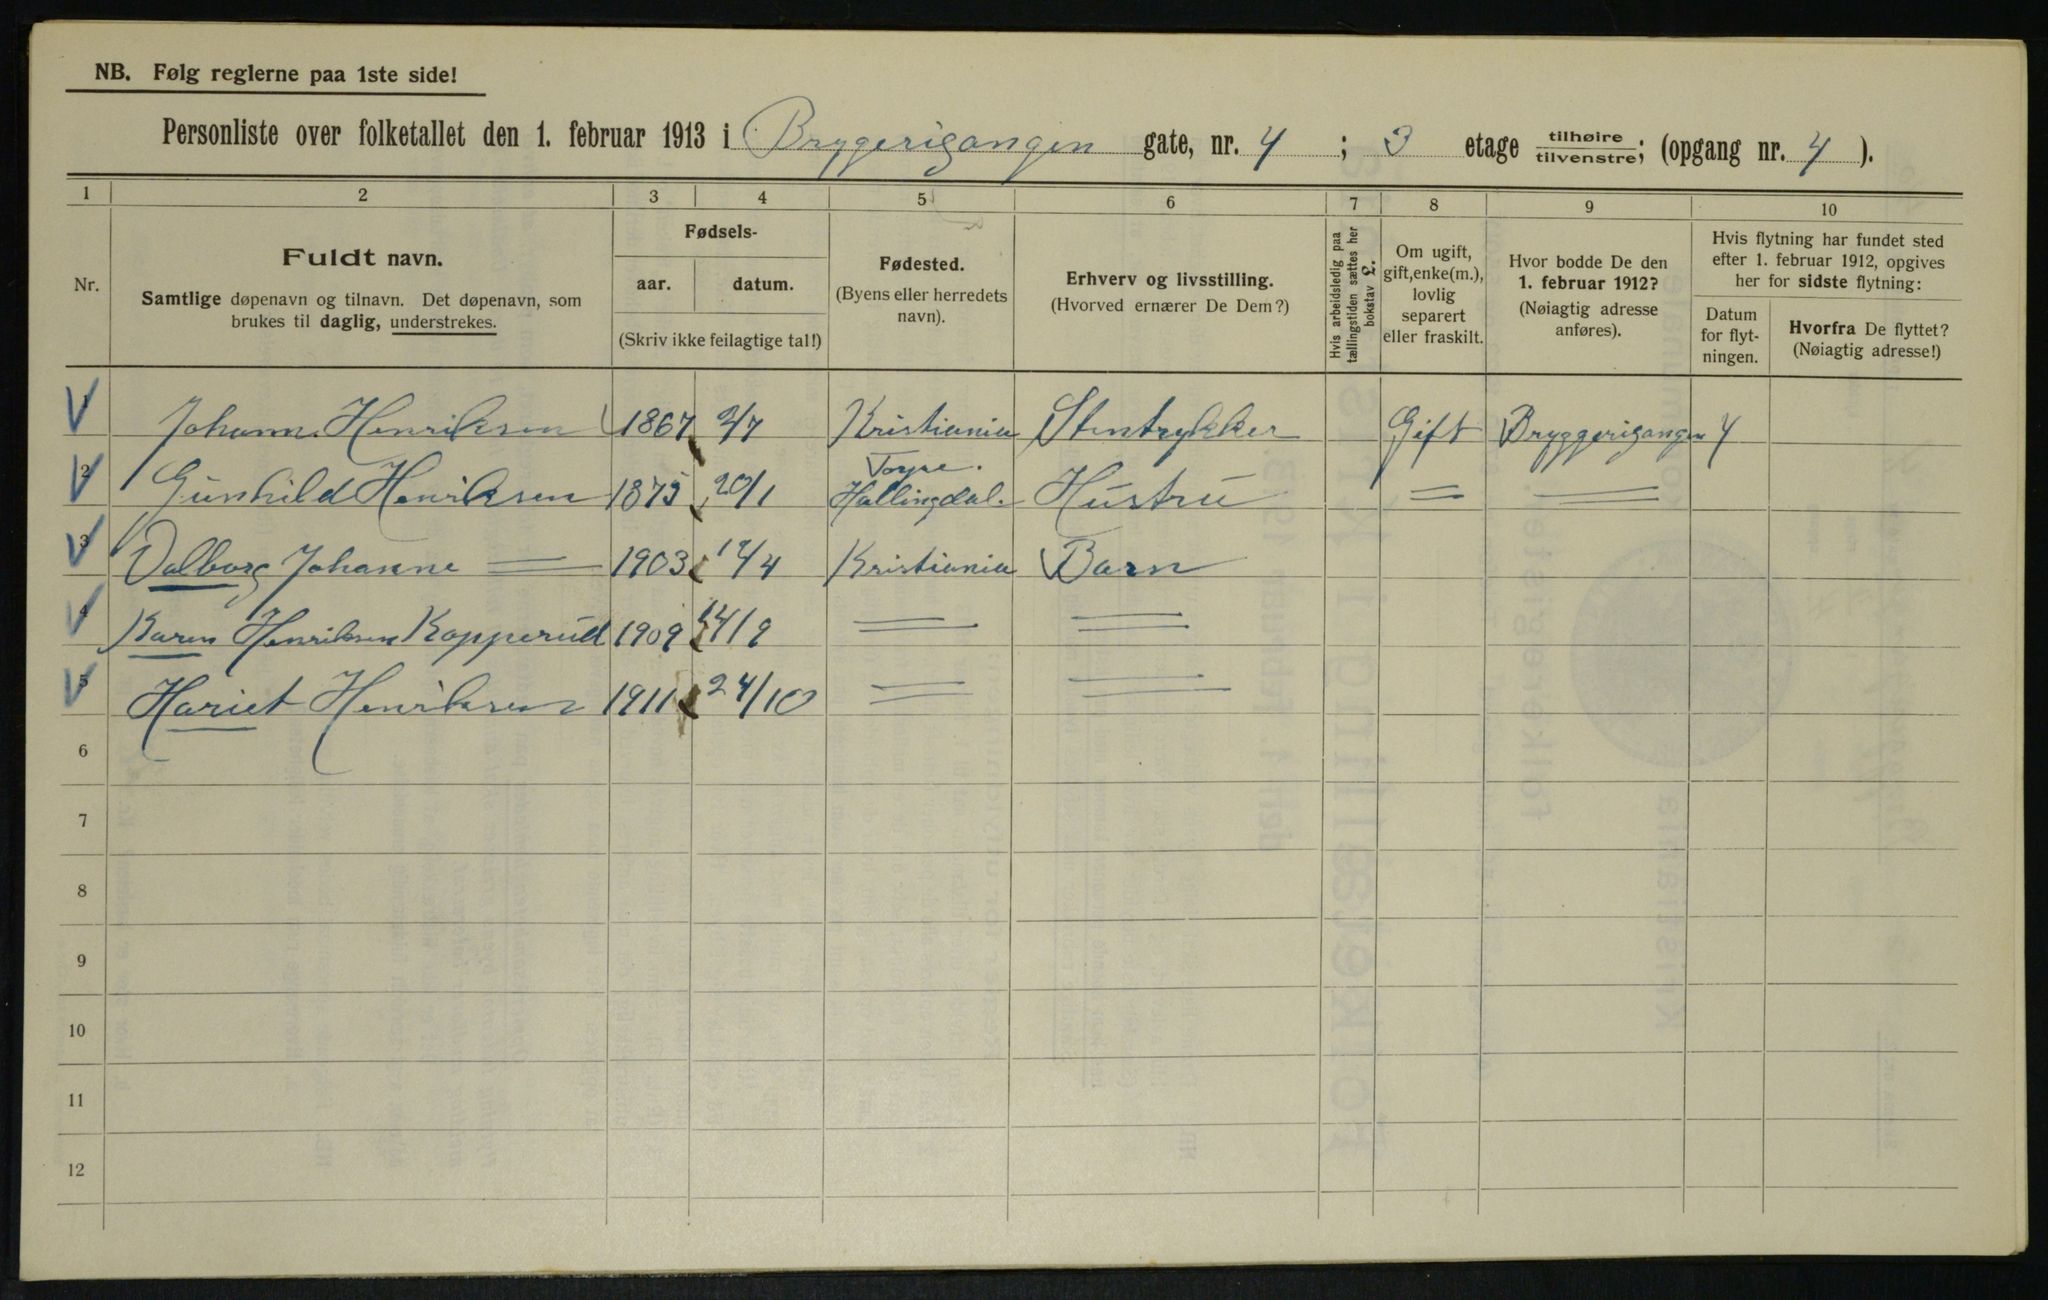 NB. Følg reglerne paa 1ste side!
Personliste over folketallet den 1. februar 1913 i Bryggerigangen gate, nr. 4 ; 3 etage tilhøire tilvenstre; (opgang nr. 4 ).
1 2 3 4 5 6 7 8 9 10
Nr.
Fuldt navn.
Samtlige døpenavn og tilnavn. Det døpenavn, som
brukes til daglig, understrekes.
Fødsels-
aar. datum.
(Skriv ikke feilagtige tal!)
Fødested.
(Byens eller herredets
navn).
Erhverv og livsstilling.
(Hvorved ernærer De Dem?)
Hvis arbeidsledig paa
tællingstiden sættes her
bokstav £.
Om ugift,
gift, enke(m.),
lovlig
separert
eller fraskilt.
Hvor bodde De den
1. februar 1912?
(Nøiagtig adresse
anføres).
Hvis flytning har fundet sted
efter 1. februar 1912, opgives
her for sidste flytning:
Datum
for flyt-
ningen.
Hvorfra De flyttet?
(Nøiagtig adresse!)
1 Johann Henriksen 1867 2/7 Kristiania Stentrykker Gift Bryggerigangen 4
2 Gunhild Henriksen 1875 20/1 Hallingdal. Hustru = =
3 Valborg Johanne = 1903 /4 Kristiania Barn
4 Karen Henriksen Kopperud 1909 14/9 = =
5 Hariet Henriksen 1911 24/10 = =
6
7
8
9
10
11
12